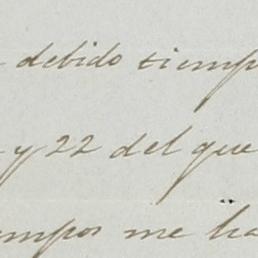 debido siemp
y 22 del que
empos me ha